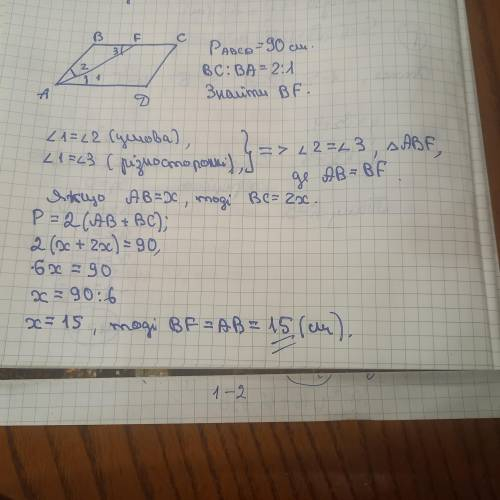 B F C
3
2
1
A D
P ABCD = 90 см.
BC : BA = 2:1
Знайти BF.
∠1=∠2 (умова),
∠1=∠3 (різносторонні), } => ∠2=∠3, △ABF,
де AB=BF.
Якщо AB=x, тоді BC=2x.
P=2(AB+BC);
2(x+2x)=90,
6x=90
x=90:6
x=15, тоді BF=AB=15(см).
1-2